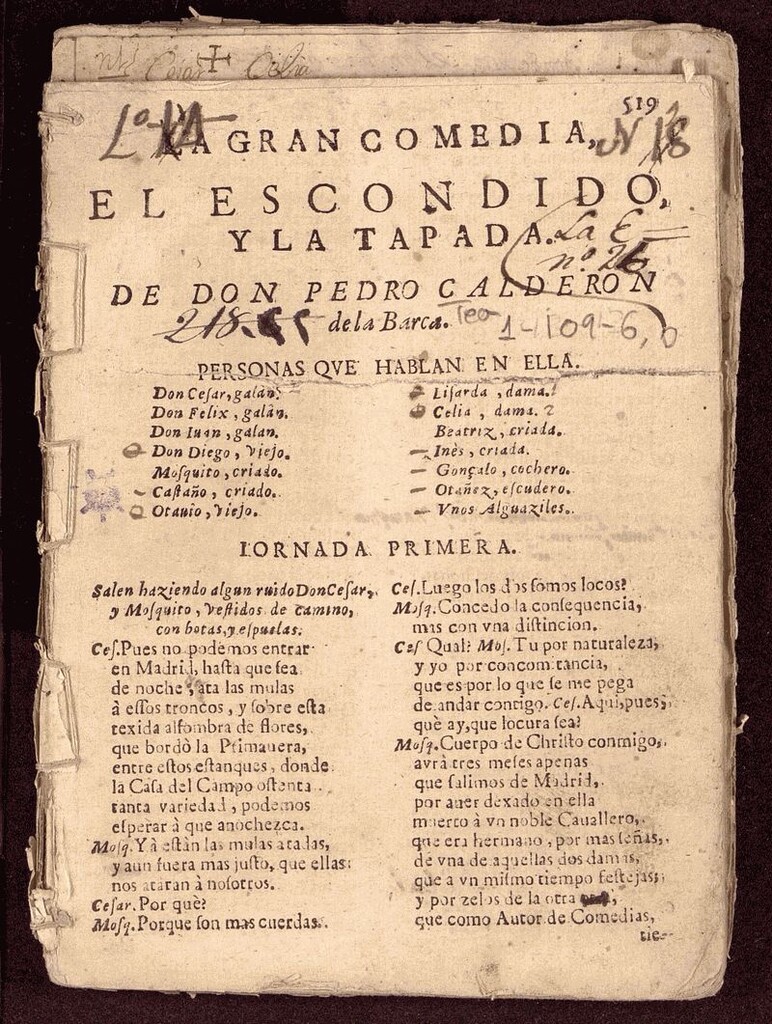 Cesar Celia
519
Lº
N 18
LA GRAN COMEDIA,
EL ESCONDIDO,
Y LA TAPADA.
La E
nº. 26
DE DON PEDRO CALDERON
de la Barca.
218.
Tea
1-109-6,
PERSONAS QVE HABLAN EN ELLA.
Don Cesar, galàn.
Don Felix, galàn.
Don Iuan, galan.
Don Diego, Viejo.
Mosquito, criado.
Castaño, criado.
Otauio, Viejo.
Lisarda, dama.
Celia, dama. 2
Beatriz, criada.
Inès, criada.
Gonçalo, cochero.
Otañez, escudero.
Vnos Alguaziles.
IORNADA PRIMERA.
Salen haziendo algun ruido Don Cesar,
y Mosquito, vestidos de camino,
con botas, y espuelas.
Ces. Pues no podemos entrar
en Madrid, hasta que sea
de noche, ata las mulas
à essos troncos, y sobre esta
texida alfombra de flores,
que bordò la Primauera,
entre estos estanques, donde
la Casa del Campo ostenta
tanta variedad, podemos
esperar à que anochezca.
Mosq. Yà estàn las mulas atadas,
y aun fuera mas justo, que ellas
nos ataran à nosotros.
Cesar. Por què?
Mosq. Porque son mas cuerdas.
Ces. Luego los dos somos locos?
Mosq. Concedo la consequencia,
mas con vna distincion.
Ces Qual? Mos. Tu por naturaleza,
y yo por concomitancia,
que es por lo que se me pega
de andar contigo. Ces. Aqui, pues,
què ay, que locura sea?
Mosq. Cuerpo de Christo conmigo,
avrà tres meses apenas
que salimos de Madrid,
por auer dexado en ella
muerto à vn noble Cauallero,
que era hermano, por mas señas,
de vna de aquellas dos damas,
que a vn mismo tiempo festejas;
y por zelos de la otra
que como Autor de Comedias,
tie-